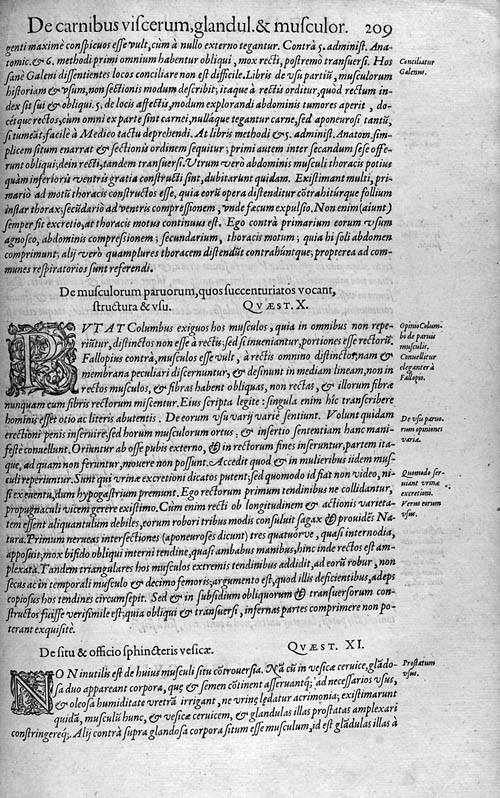 De carnibus viscerum, glandul. & musculor. 209
genti maximè conspicuos esse vult, cùm à nullo externo tegantur. Contrà 5. administ. Ana-
tomic. & 6. methodi primi omnium habentur obliqui, mox recti, postremò transuersi. Hos
sanè Galeni dissentientes locos conciliare non est difficile. Libris de vsu partiũ, musculorum
historiam & vsum, non sectionis modum describit; itaque à rectis orditur, quod rectum in-
dex sit sui & obliqui. 5. de locis affectis, modum explorandi abdominis tumores aperit, do-
cét que rectos; cum omni ex parte sint carnei, nullaque tegantur carne, sed aponeurosi tantũ,
si tumeãt, facilè à Medico tactu deprehendi. At libris methodi & 5. administ. Anatom. sim-
plicem situm enarrat & sectionis ordinem sequitur; primi autem inter secandum sese offe-
runt obliqui; dein recti; tandem transuersi. Vtrum verò abdominis musculi thoracis potius
quàm inferioris ventris gratia constructi sint, dubitarunt quidam. Existimant multi, pri-
mariò ad motũ thoracis constructos esse, quia eorũ opera distenditur cõtrahitúrque follium
instar thorax; secũdariò ad ventris compressionem, vnde fæcum expulsio. Non enim (aiunt)
semper fit excretio, at thoracis motus continuus est. Ego contrà primarium eorum vsum
agnosco, abdominis compressionem; secundarium, thoracis motum; quia hi soli abdomen
comprimunt; alij verò quamplures thoracem distendũt contrahúntque; propterea ad com-
munes respiratorios sunt referendi.
Conciliatur
Galenus.
De musculorum paruorum, quos succenturiatos vocant,
structura & vsu. QVÆST. X.
PVTAT Columbus exiguos hos musculos, quia in omnibus non repe-
riũtur, distinctos non esse à rectis; sed si inueniantur, portiones esse rectorũ.
Fallopius contrà, musculos esse vult, à rectis omnino distinctos; nam &
membrana peculiari discernuntur, & desinunt in mediam lineam, non in
rectos musculos, & fibras habent obliquas, non rectas, & illorum fibræ
nunquam cum fibris rectorum miscentur. Eius scripta legite: singula enim hîc transcribere
hominis esset otio ac literis abutentis. De eorum vsu varij variè sentiunt. Volunt quidam
erectioni penis inseruire; sed horum musculorum ortus, & insertio sententiam hanc mani-
festè conuellunt. Oriuntur ab osse pubis externo, & in rectorum fines inseruntur, partem ita-
que, ad quam non feruntur, mouere non possunt. Accedit quod & in mulieribus iidem mus-
culi reperiuntur. Sunt qui vrinæ excretioni dicatos putent; sed quomodo id fiat non video, ni-
si ex euentu, dum hypogastrium premunt. Ego rectorum primum tendinibus ne collidantur,
propugnaculi vicem gerere existimo. Cùm enim recti ob longitudinem & actionis varieta-
tem essent aliquantulum debiles, eorum robori tribus modis consuluit sagax & prouidẽs Na-
tura. Primùm nerueas intersectiones (aponeuroses dicunt) tres quatuorve, quasi internodia,
apposuit; mox bifido obliqui interni tendine, quasi ambabus manibus, hinc inde rectos est am-
plexata. Tandem triangulares hos musculos extremis tendinibus addidit, ad eorũ robur, non
secus ac in temporali musculo & decimo femoris; argumento est, quod illis deficientibus, adeps
copiosus hos tendines circumsepit. Sed & in subsidium obliquorum & transuersorum con-
structos fuisse verisimile est; quia obliqui & transuersi, infernas partes comprimere non po-
terant exquisitè.
Opinio Colum-
bi de paruis
musculis.
Conuellitur
eleganter à
Fallopio.
De vsu paruo-
rum opiniones
varia.
Quomodo ser-
uiant vrinæ
excretioni.
Verus eorum
vsus.
De situ & officio sphincteris vesicæ. QVÆST. XI.
NON inutilis est de huius musculi situ cõtrouersia. Nã cũ in vesicæ ceruice, glãdo-
sa duo appareant corpora, quę & semen cõtinent asseruantq; ad necessarios vsus,
& oleosa humiditate vretrã irrigant, ne vrinę lædatur acrimonia; existimarunt
quidã, musculũ hunc, & vesicæ ceruicem, & glandulas illas prostatas amplexari
constringereq;. Alij contrà supra glandosa corpora situm esse musculum, id est glãdulas illas à
Prostatum
vsus.